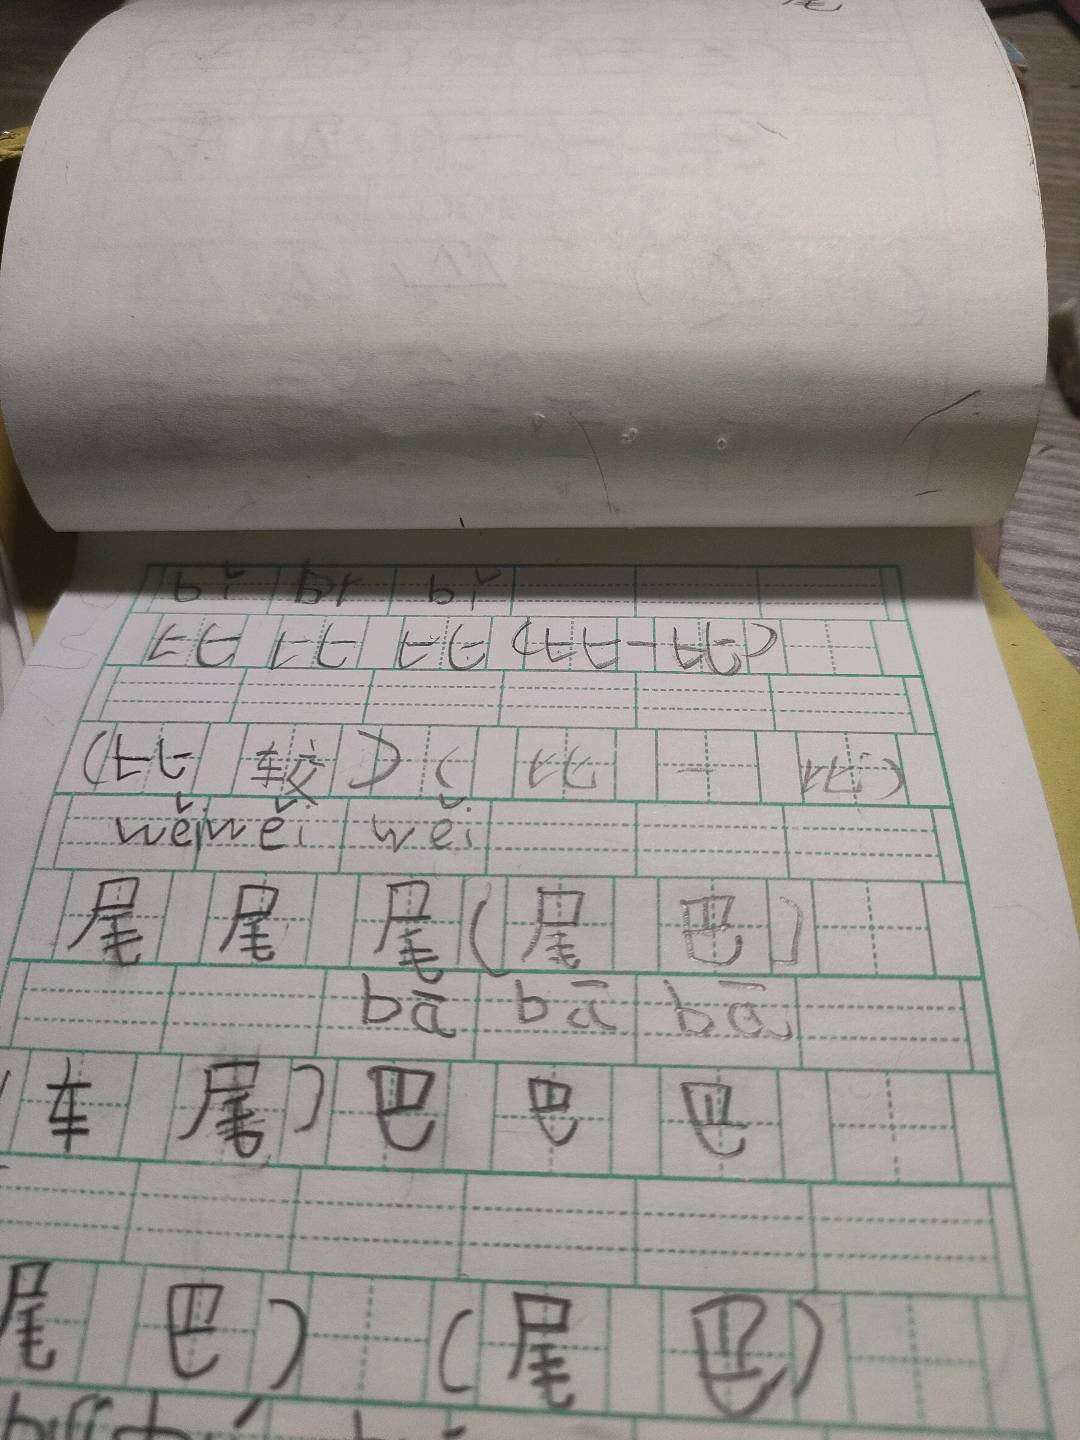 bǐ bǐ bǐ
比 比 比 (比一比)
(比较) (比一比)
wěi wěi wěi
尾 尾 尾 (尾巴)
bā bā bā
(车尾) 巴 巴 巴
尾巴) (尾巴)